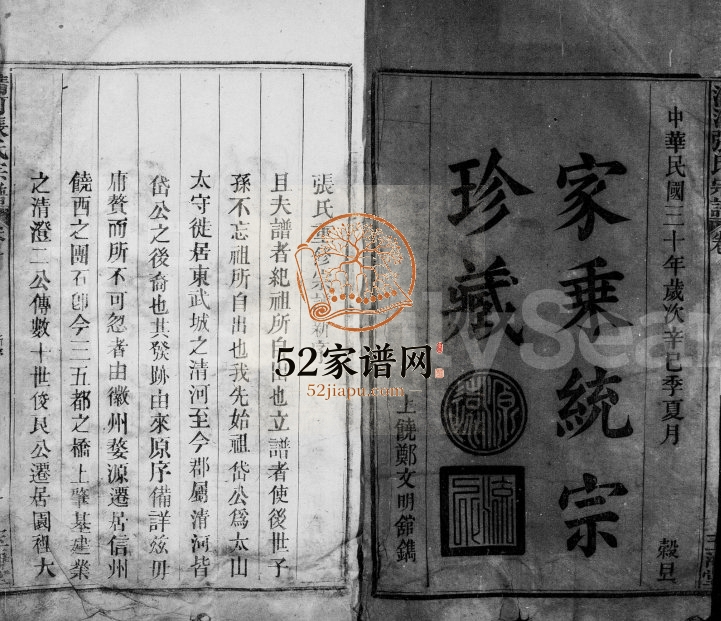 中華民國三十年歲次辛巳季夏月
穀旦
家乘統宗
珍藏
上饒鄭文明鐫
張氏重修
且夫譜者紀祖所自出也立譜者使後世子
孫不忘祖所自出也我先始祖岱公爲太山
太守徙居東武城之清河至今郡屬清河皆
岱公之後裔也其發跡由來原序備詳玆毋
庸贅而所不可忽者由徽州婺源遷居信州
饒西之團石卽今三五都之橋上肇基建業
之清澄二公傳數十世俊民公遷居園裡大
清河張氏宗譜
52家谱网
52jiapu.com